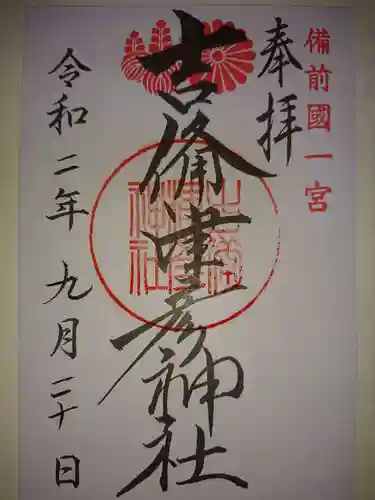 備前國一宮
奉拝
吉備津彦神社
令和二年九月二十日